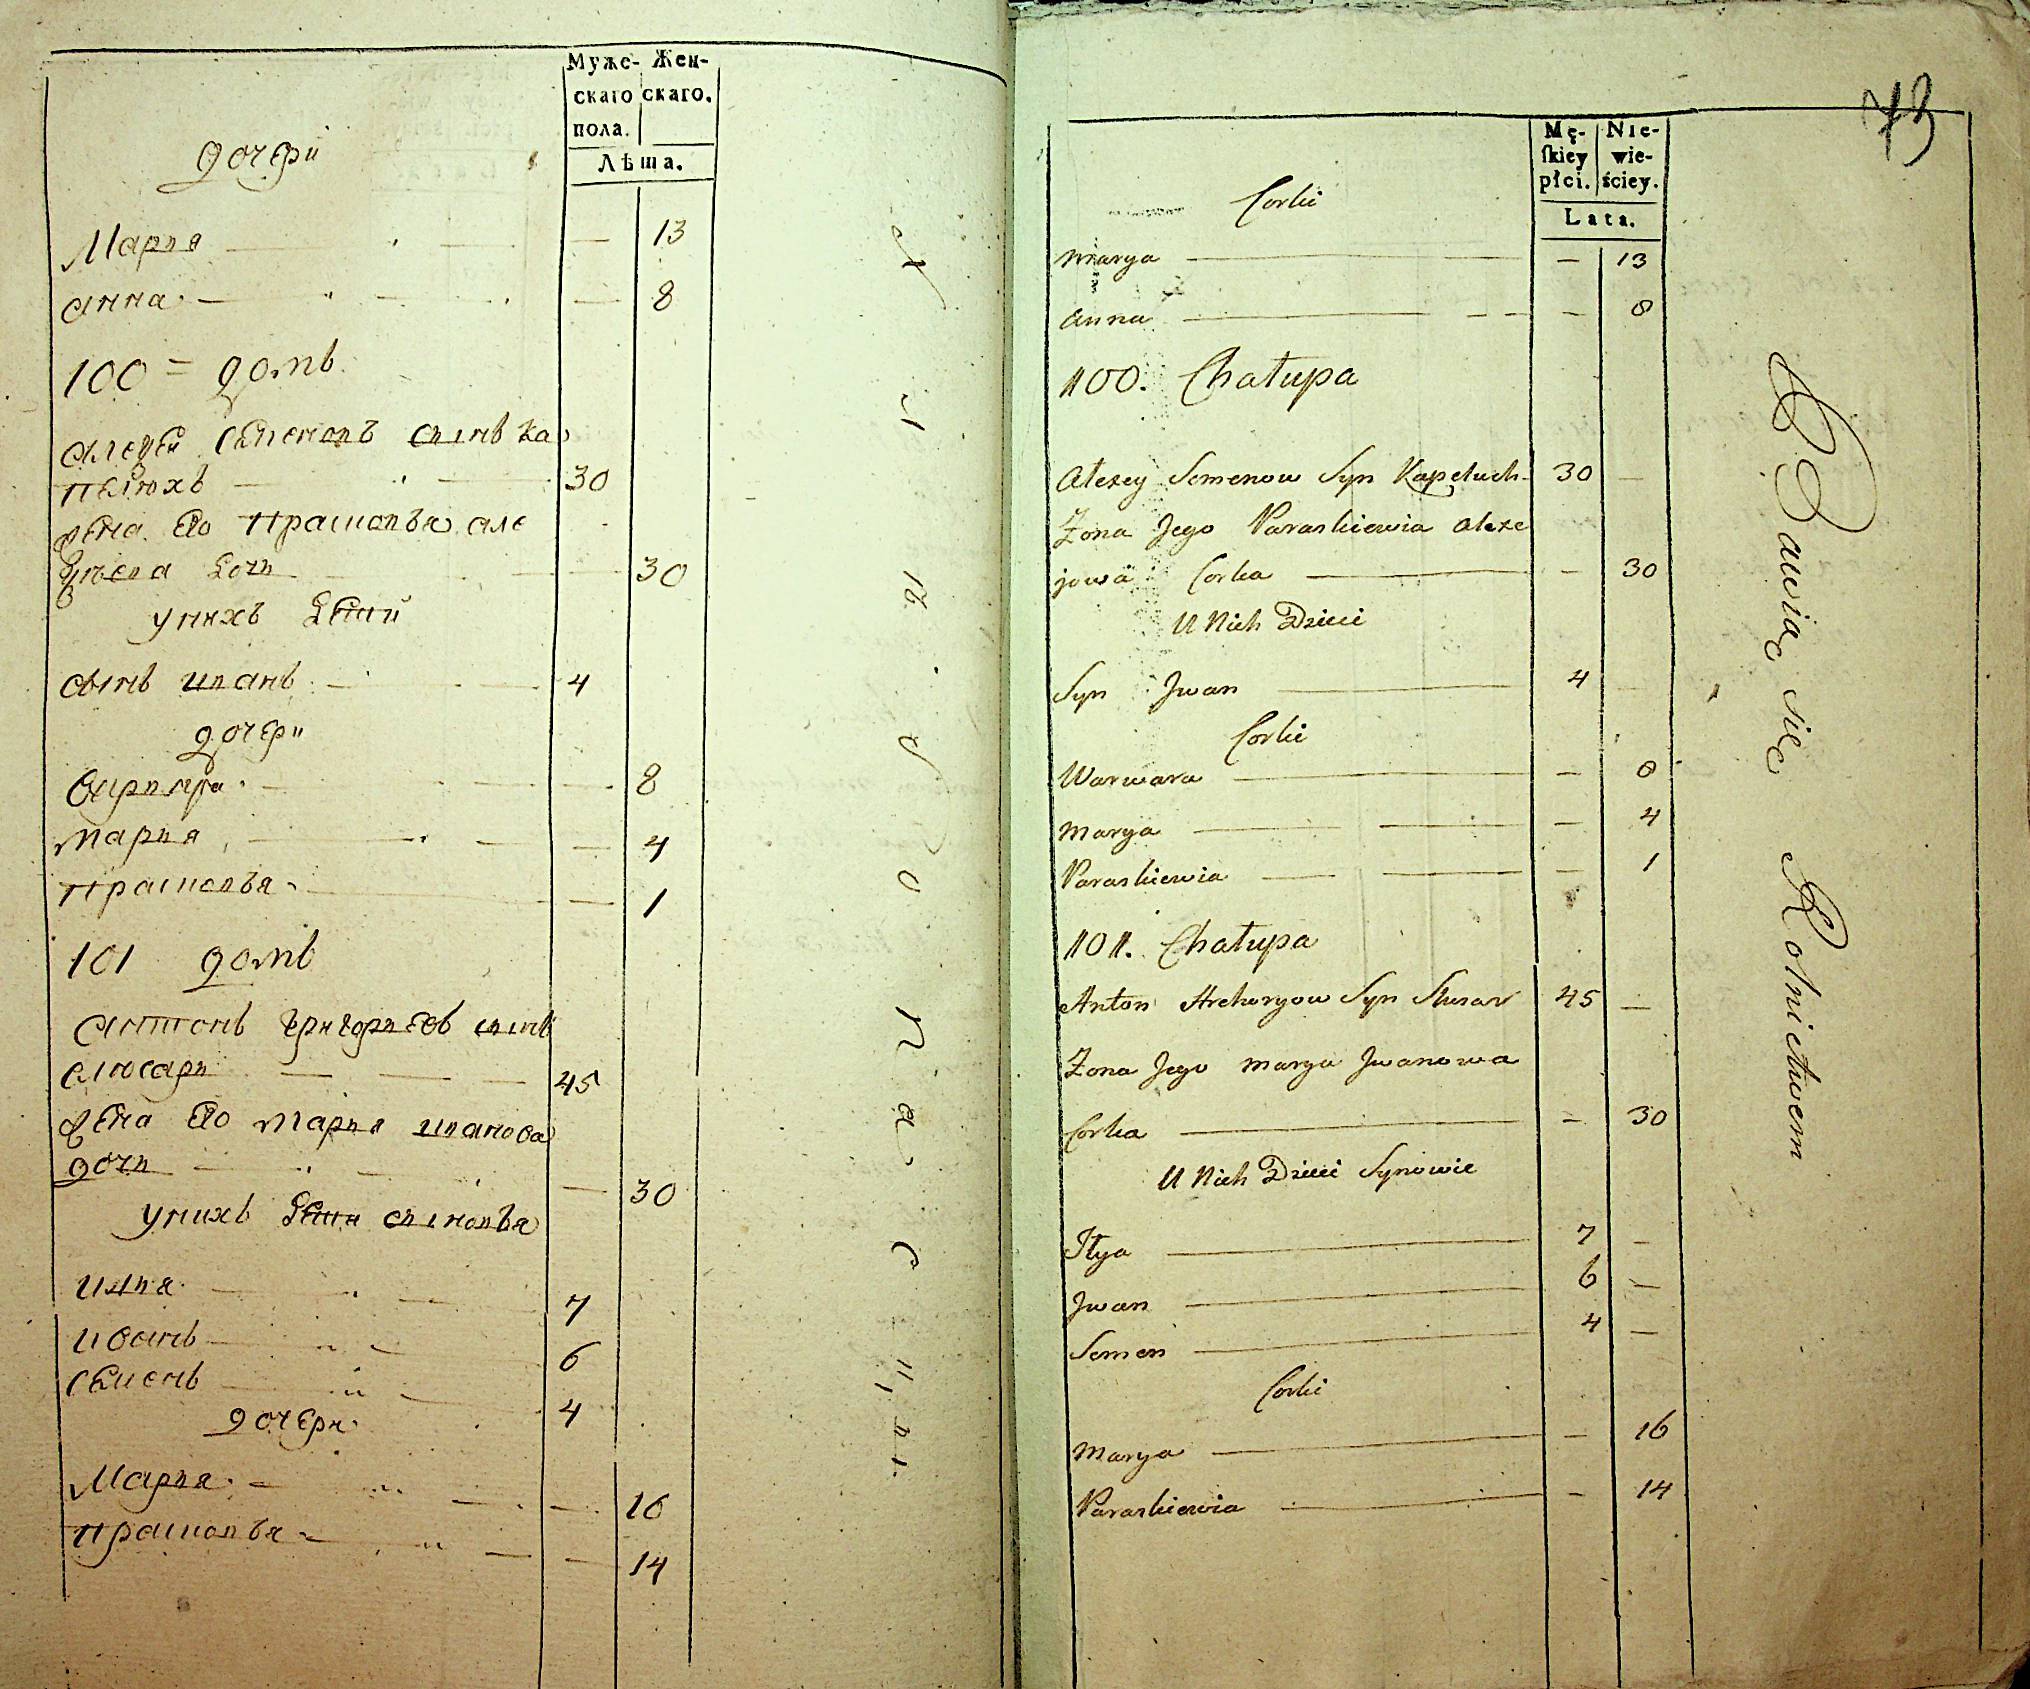 Муже- Жен-
скаго скаго.
пола.
Лѣта.
дочери
Мария — 13
анна — 8
100 = домъ
алецеи Семеновъ сынъ Ка
пелюхъ — 30
жена Его Прасковья але
цеева дочь — 30
у нихъ дети
сынъ иванъ — 4
дочери
Варвара — 8
Мария — 4
Прасковья — 1
101 домъ
антонъ григорьевъ сынъ
слюсарь — 45
жена Его Мария иванова
дочь — 30
у нихъ дети сыновья
илия — 7
иванъ — 6
Семенъ — 4
дочери
Мария — 16
Прасковья — 14
73
Mę- Nie-
skiey wie-
płci. ściey.
Lata.
Corki
Marya — — 13
Anna — — 8
100. Chałupa
Alexey Semenow Syn Kapeluch 30 —
Zona Jego Paraskiewia Alexe
jowa Corka — — 30
U Nich Dzieci
Syn Jwan — 4 —
Corki
Warwara — — 8
Marya — — 4
Paraskiewia — — 1
101. Chałupa
Anton Hrehoryow Syn Slusar 45 —
Zona Jego Marya Jwanowa
Corka — — 30
U Nich Dzieci Synowie
Ilya — 7 —
Jwan — 6 —
Semen — 4 —
Corki
Marya — — 16
Paraskiewia — — 14
Bawią się Rolnictwem